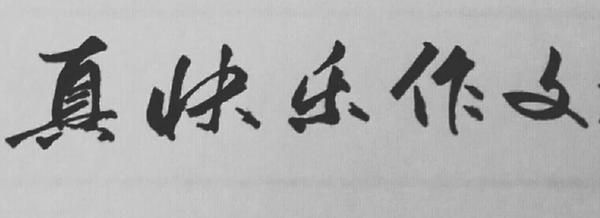 真快乐作文